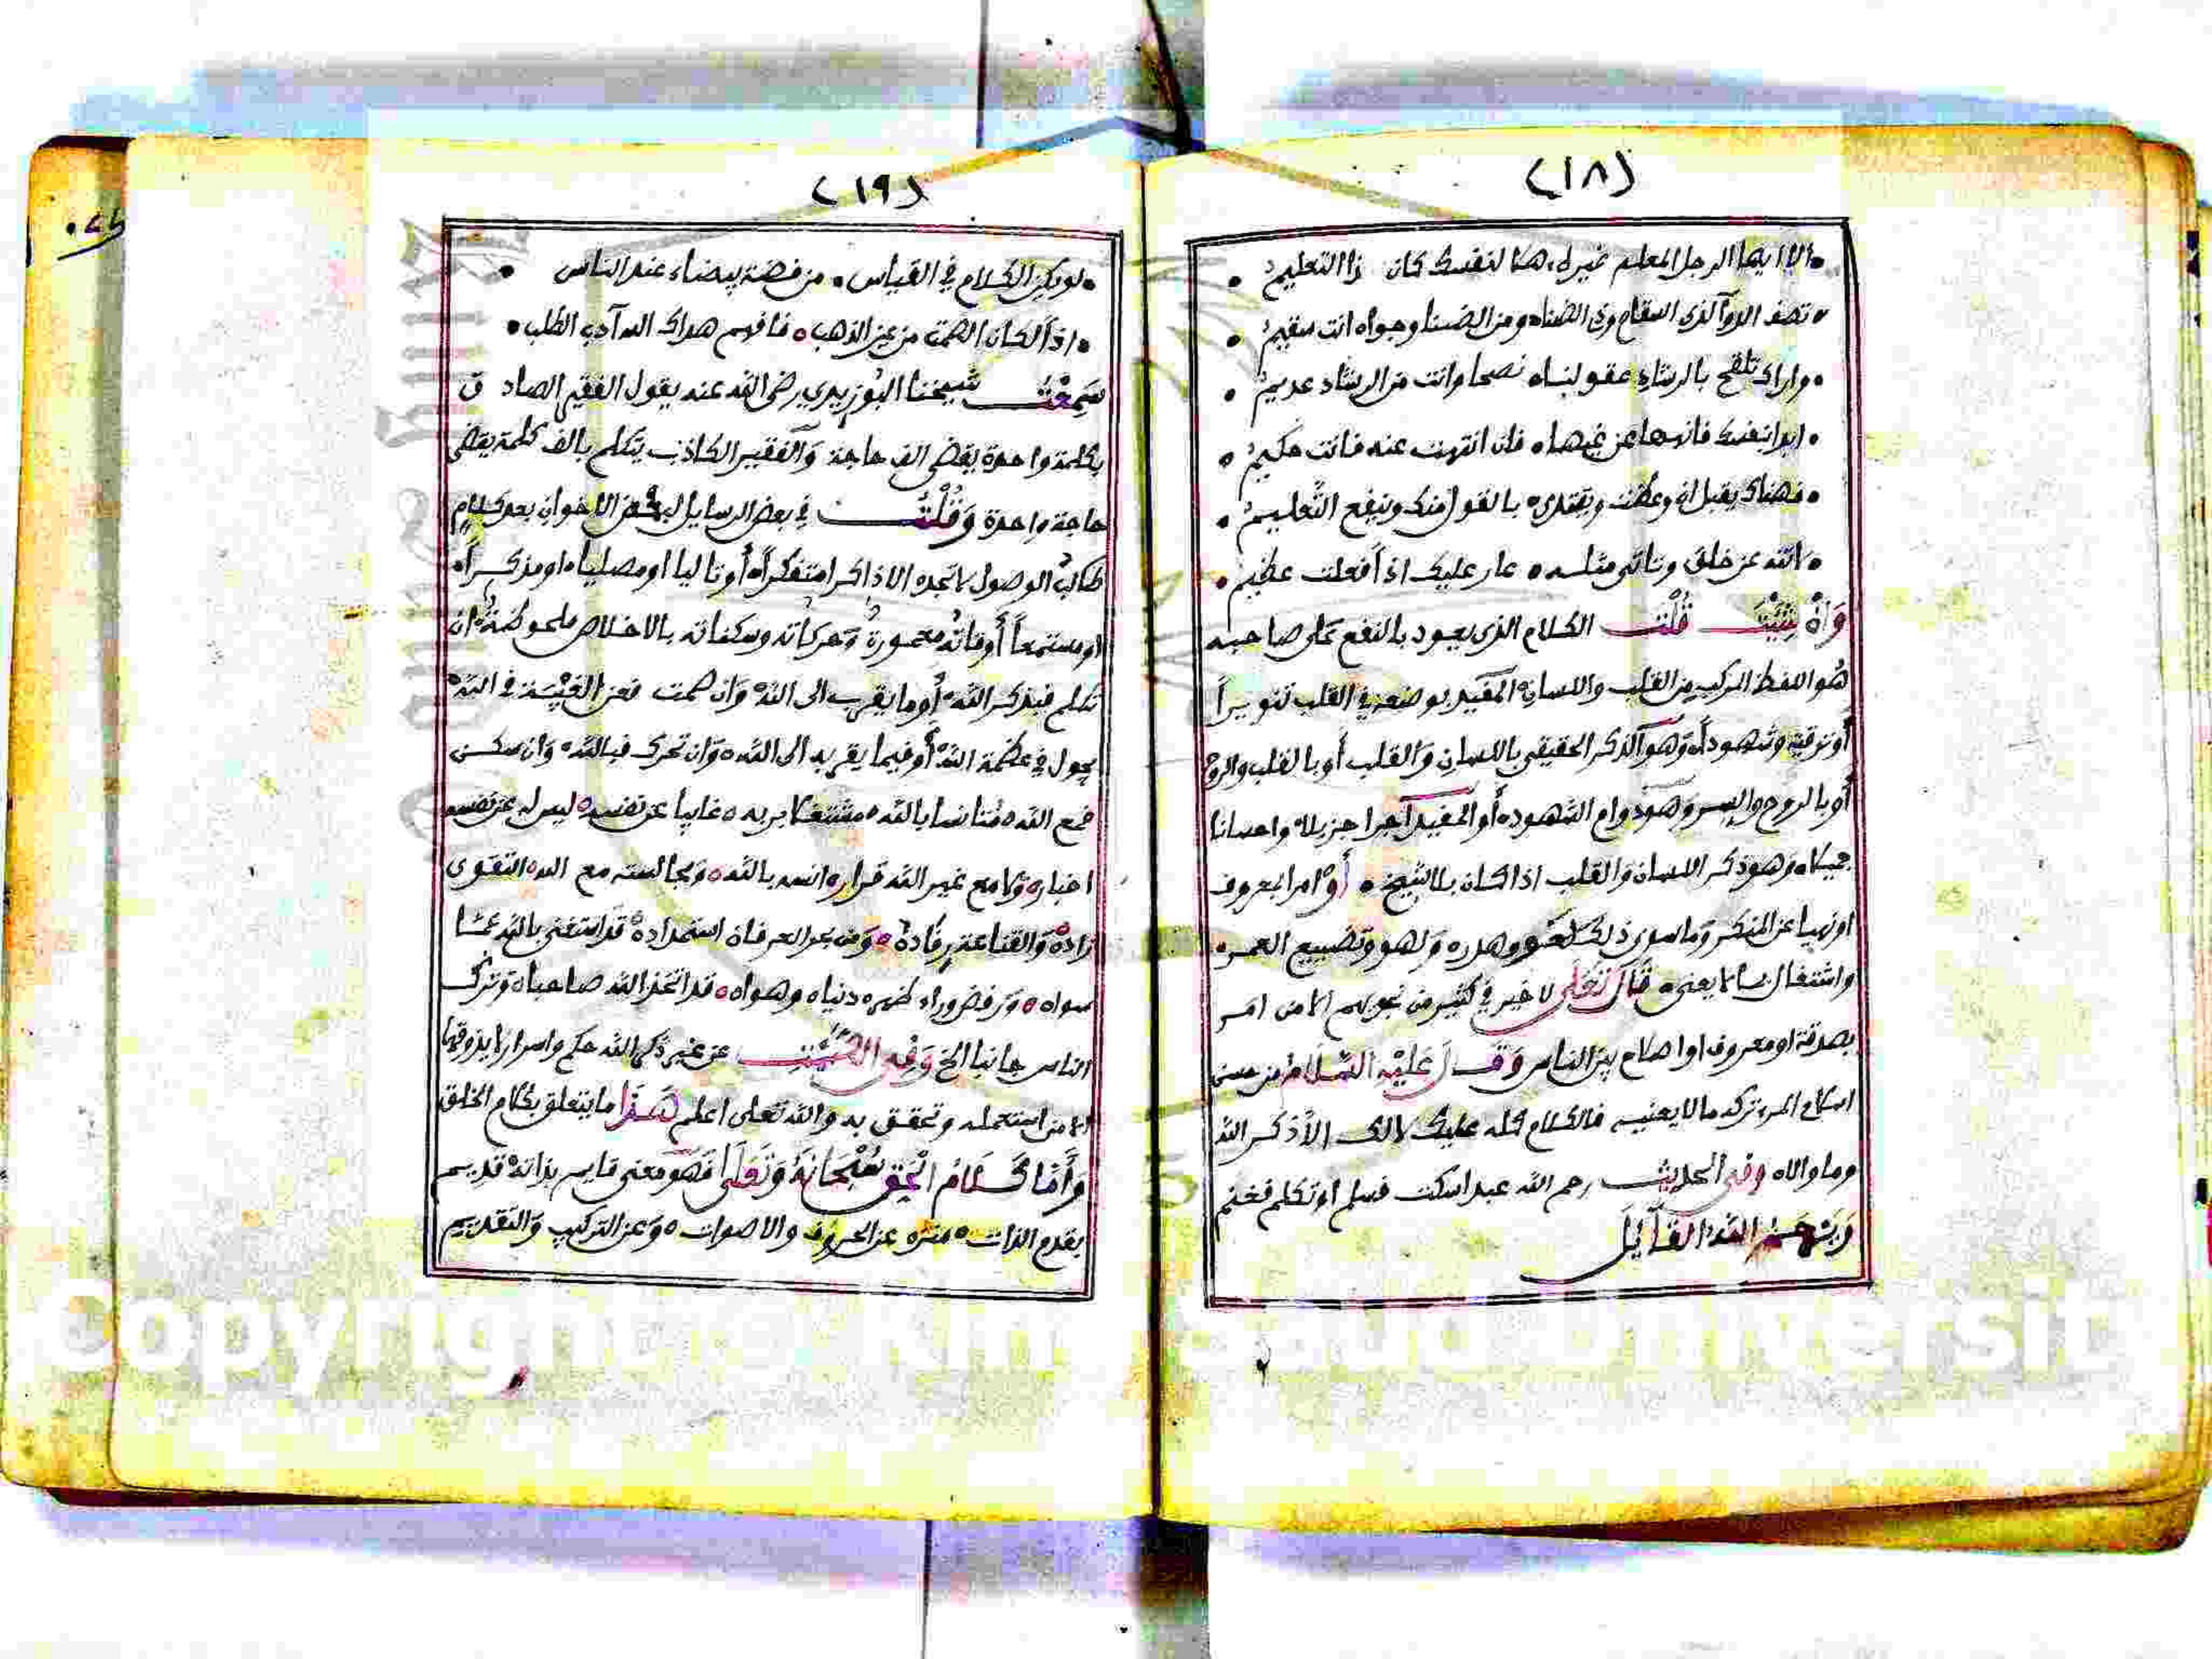 (١٨)
• الا ايها الرجل المعلم غيره • هلا لنفسك كان ذا التعليم •
• تصف الدوآ لذى السقام وذى الضناه ومن الضنا وجواه انت سقيم •
• واراك تلقح بالرشاد عقولنا • نصحا وانت من الرشاد عديم •
• ابدا بنفسك فانهها عن غيها • فان انتهت عنه فانت حكيم •
• فهناك يقبل ان وعظت ويقتدى • بالقول منك وينفع التعليم •
• لاتنه عن خلق وتاتى مثله • عار عليك اذا فعلت عظيم •
وَانْ شِئْتَ قُلْتَ الكلام الذى يعود بالنفع على صاحبه
هُو اللفظ المركب من القلب واللسان المفيد بوضعه في القلب تنويراً
أو ترقية وشهوداً • وَهو الذكر الحقيقي باللسان وَالقلب أو بالقلب والروح
أو بالروح والسر وَهو دوام الشهود • أو المفيد آجرا جزيلا • واحسانا
جميلا • وَهو ذكر اللسان وَالقلب اذا كان بلا شيخ • أَوْ امرا بمعروف
او نهيا عن المنكر وَما سوى ذلك لغو وهدره وَلهو وتضييع العمر •
واشتغال بما لا يعنى • قَالَ تَعَلَى لا خير في كثير من نجويهم الا من امر
بصدقة او معروف او اصلاح بين الناس وَقَالَ عَلَيْهِ السَّلَامُ من حسن
اسلام المرء تركه ما لا يعنيه فالكلام كله عليك لا لك الا ذكر الله
وما والاه وفي الحديث رحم الله عبدا سكت فسلم او تكلم فغنم
وَيَرْحَمُ اللهُ القَآئِلَ
(١٩)
• لو يكن الكلام في القياس • من فضة بيضاء عند الناس •
• اذا لكان الصمت من عين الذهب • فافهم هداك الله آدب الطلب •
سَمِعْتُ شيخنا البُوزيدي رضى الله عنه يقول الفقير الصادق
بكلمة واحدة يقضى الف حاجة وَالفقير الكاذب يتكلم بالف كلمة يقضى
حاجة واحدة وَقُلْتُ في بعض الرسايل لبعض الاخوان بعد كلام
طالب الوصول لا تجده الا ذاكرا متفكراً • أو تاليا او مصليا • او مذكراً •
او مستمعاً أوقاته معمورة وَحركاته وسكناته بالاخلاص ملحوظة • ان
تكلم فبذكر الله • أو ما يقرب الى الله • وَان صمت فعن الغيبة في الله •
يجول في عظمة الله أو فيما يقربه الى الله • وَان تحرك فبالله • وَان سكن
فمع الله • مُتانسا بالله • مشتغلا بربه • غايبا عن نفسه • ليس له عن نفسه
اخباره • وَلا مع غير الله قرار • انسه بالله • وَمجالسته مع الله • التقوى
زاده • وَالقناعة رقاده • وَمن بحر العرفان استمداده • قد استغنى بالله عمّا
سواه • وَرفض وراء ظهره دنياه وهواه • قد اتخذ الله صاحبا • وَترك
الناس جانبا الخ وَفِي الصَّمْتِ عن غير ذكر الله حكم واسرار لا يذوقها
الا من استعمله وتحقق به والله تعلى اعلم هَذَا ما يتعلق بكلام الخلق
وَأَمَّا كَلَامُ الْحَقِ سُبْحَانَهُ وَتَعَلَى فَهُو معنى قايم بذاته • قديم
بقدم الذات • منزه عن الحروف والاصوات • وَعن التركيب وَالتقديم